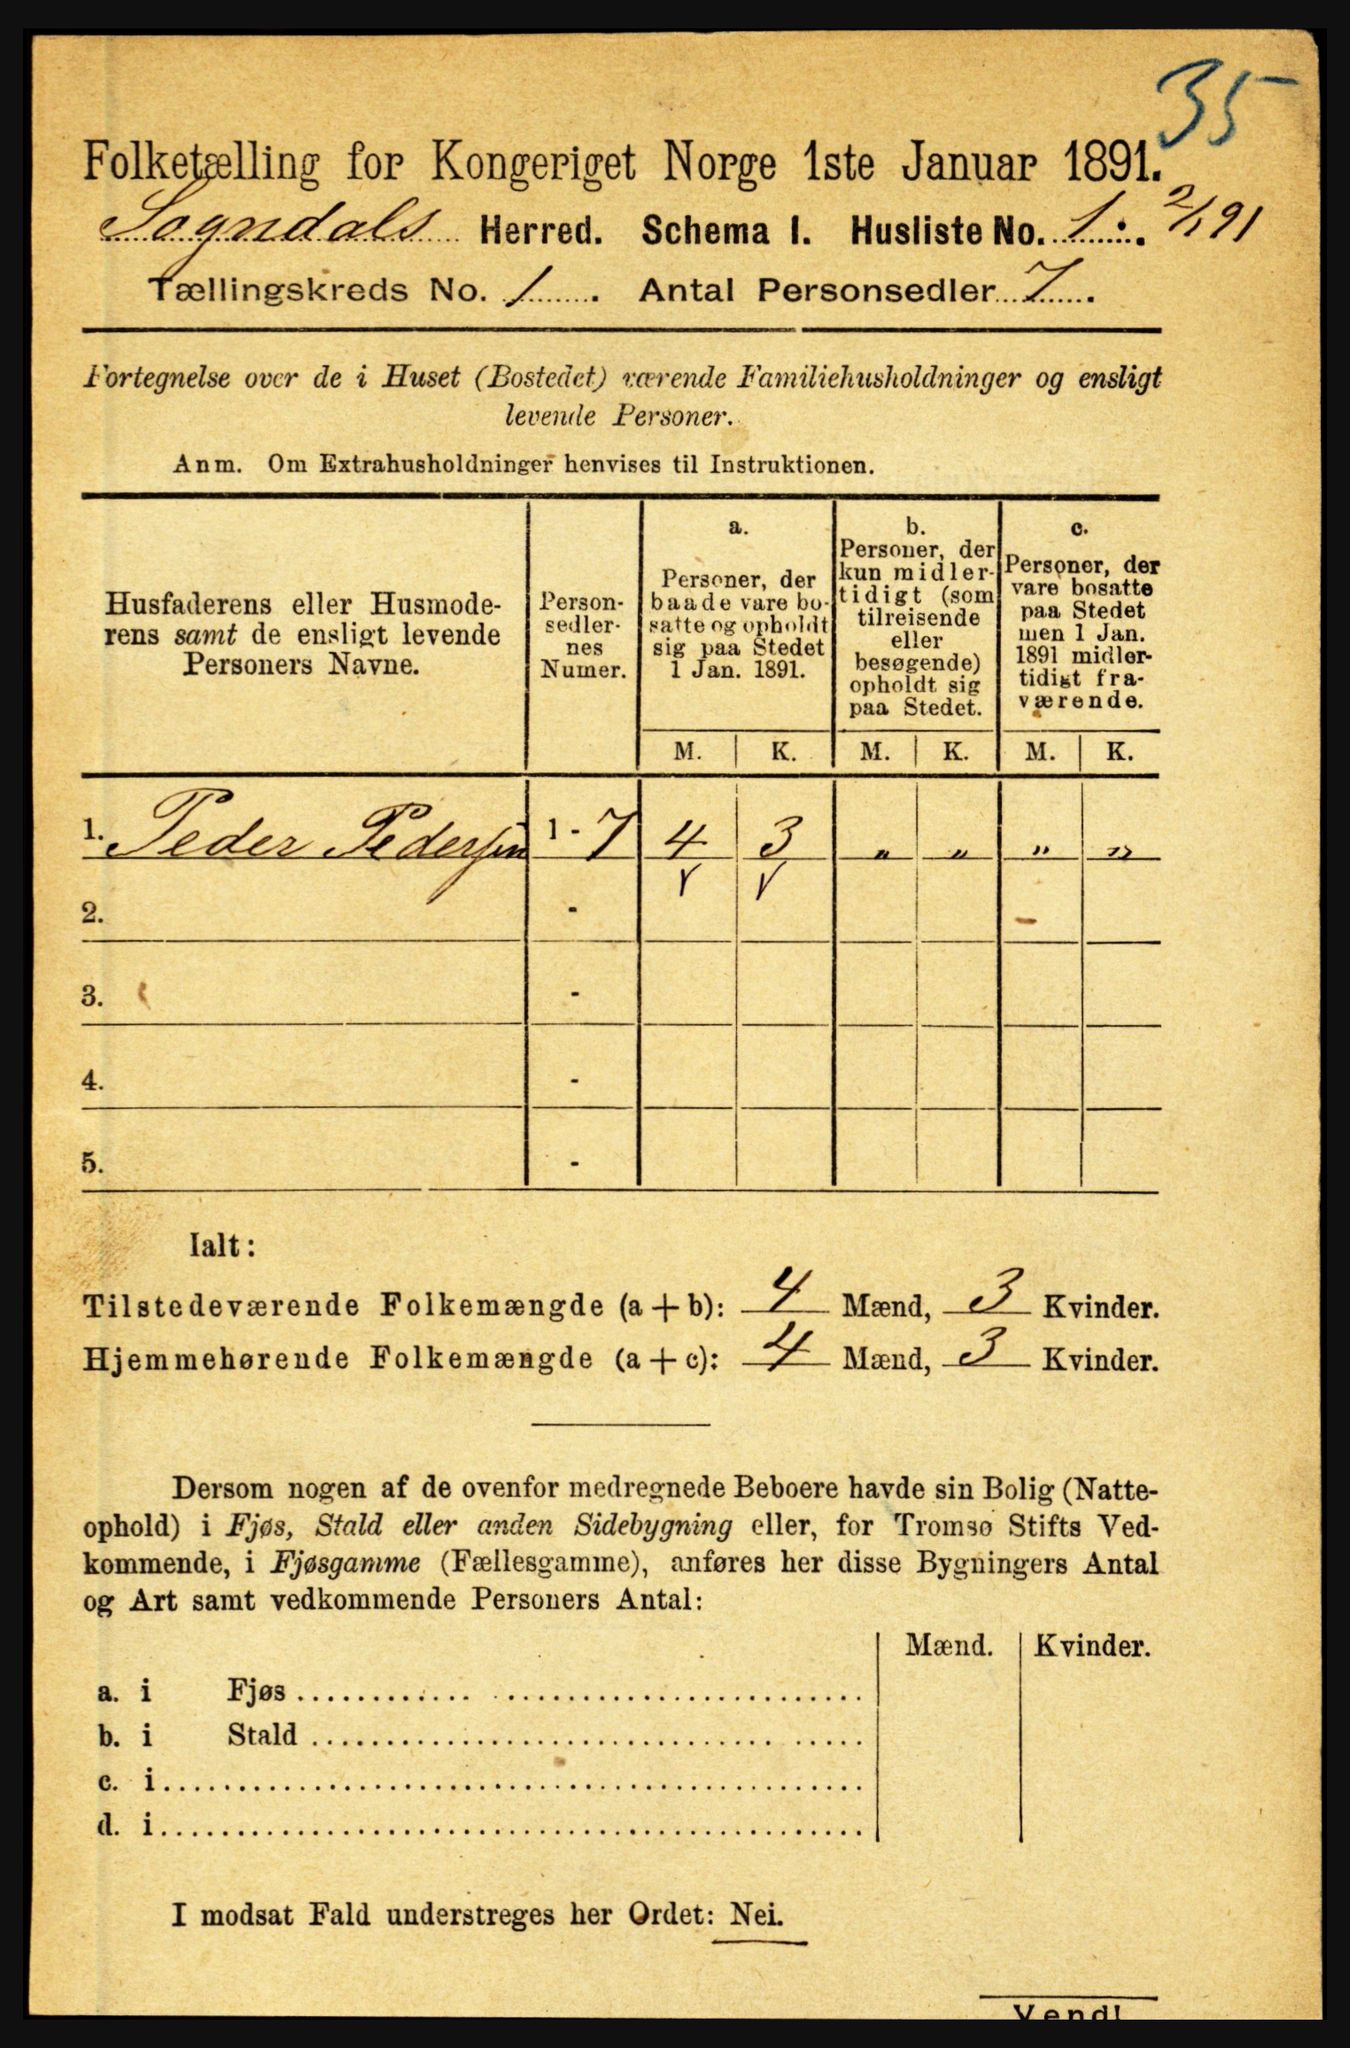 35
Folketælling for Kongeriget Norge 1ste Januar 1891.
Sogndals Herred. Schema I. Husliste No. 1. 2/1 91
Tællingskreds No. 1. Antal Personsedler 7.
Fortegnelse over de i Huset (Bostedet) værende Familiehusholdninger og ensligt
levende Personer.
Anm. Om Extrahusholdninger henvises til Instruktionen.
Husfaderens eller Husmode-
rens samt de ensligt levende
Personers Navne.
Person-
sedler-
nes
Numer.
a.
Personer, der
baade vare bo-
satte og opholdt
sig paa Stedet
1 Jan. 1891.
b.
Personer, der
kun midler-
tidigt (som
tilreisende
eller
besøgende)
opholdt sig
paa Stedet.
c.
Personer, der
vare bosatte
paa Stedet
men 1 Jan.
1891 midler-
tidigt fra-
værende.
M. K. M. K. M. K.
1. Peder Pedersen 1 - 7 4 3 „ „ „ „
2. -
3. -
4. -
5. -
Ialt:
Tilstedeværende Folkemængde (a + b): 4 Mænd, 3 Kvinder.
Hjemmehørende Folkemængde (a + c): 4 Mænd, 3 Kvinder.
Dersom nogen af de ovenfor medregnede Beboere havde sin Bolig (Natte-
ophold) i Fjøs, Stald eller anden Sidebygning eller, for Tromsø Stifts Ved-
kommende, i Fjøsgamme (Fællesgamme), anføres her disse Bygningers Antal
og Art samt vedkommende Personers Antal:
Mænd. Kvinder.
a. i Fjøs
b. i Stald
c. i
d. i
I modsat Fald understreges her Ordet: Nei.
Vend!